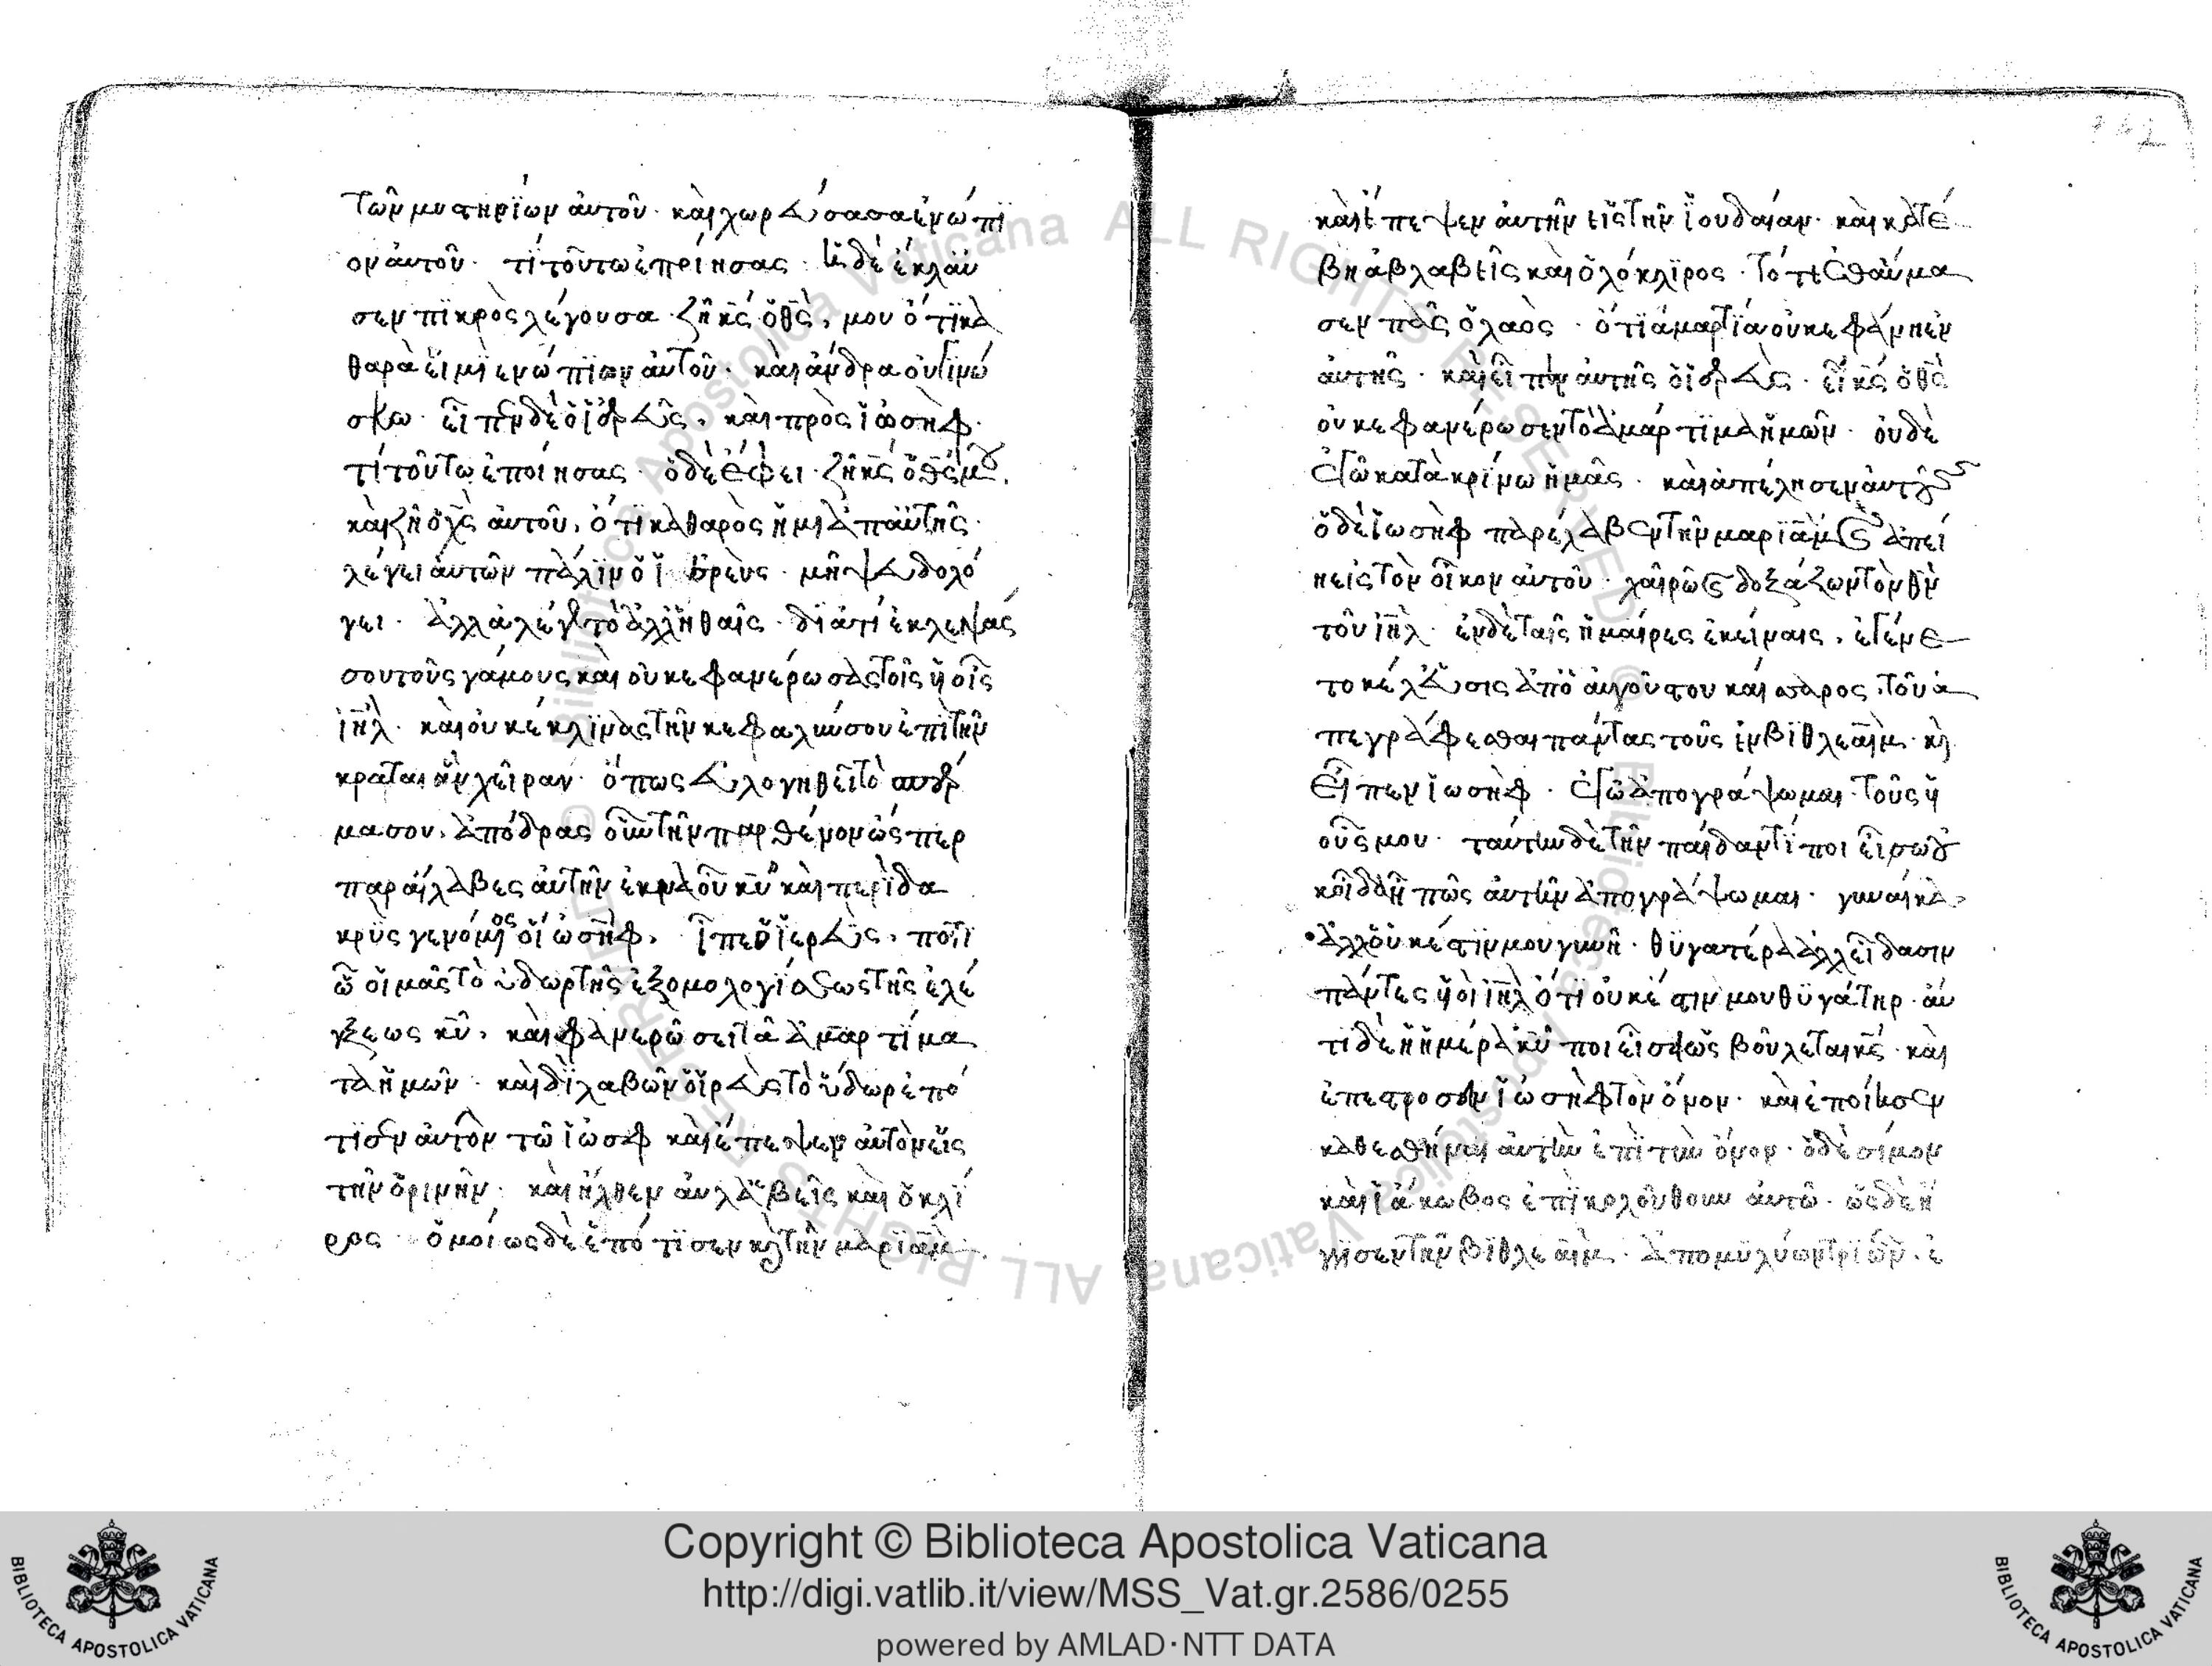 τῶν μυστηρΐων ἀυτοῦ · καὶ χωρεύσασα ἐνώπϊ
ον ἀυτοῦ · τί τοῦτω ἐπρίησας · ἡ δὲ ἔκλαυ
σεν πϊκρὸς λέγουσα · ζῆ κ̅ς ὁ θ̅ς μου ὅτϊ κα
θαρὰ εἰμὶ ενώπϊον ἀυτοῦ · καὶ ἄνδρα οὐ γϊνώ
σκω · εἶπεν δὲ ὁ ἱερεὺς · καὶ πρὸς ἰωσὴφ ·
τί τοῦτω ἐποίησας · ὁ δὲ ἔφει · ζῆ κ̅ς ὁ θ̅ς μου
καὶ ζῆ ὁ χ̅ς ἀυτοῦ, ὅτϊ καθαρὸς ἤμι ἀπ αὐτῆς ·
λέγει ἀυτῶν πάλϊν ὁ ϊερεὺς · μὴ ψευδολό
γει · ἀλλὰ λέγε τὸ ἀλλῆθαις · δϊατί ἐκλεψάς
σου τοὺς γάμους καὶ οὐκ εφανέρωσας τοῖς ὑοῖς
ι̅η̅λ · καὶ οὐκ ἔκλϊνας τὴν κεφαλήν σου ἐπὶ τὴν
κραταιὰν χεῖραν · ὅπως εὐλογηθεῖ τὸ σπέρ
μα σου · ἀπόδρας οὖν τὴν παρθένον ὥσπερ
παράλαβες ἀυτὴν ἐκ ναοῦ κ̅υ καὶ περὶ δα
κρὺς γενόμενος ὁ ἰωσὴφ · εἶπεν ὁ ἱερεὺς · ποτϊ
ῶ οἱμᾶς τὸ ὑδωρ τῆς ἐξομολογίσεως τῆς ἐλέ
γξεως κ̅υ · καὶ φανερῶσει τὰ ἁμαρτίμα
τα ἡμῶν · καὶ δὶ λαβὼν ὁ ϊερεὺς τὸ ὕδωρ ἐπό
τϊσεν ἀυτὸν τῶ ἰώσηφ καὶ ἔπεψεν ἀυτὸν εἰς
τὴν ὀρινὴν · καὶ ἦλθεν ἀυλάβεῖς καὶ ὁκλϊ
ρος · ὁμοίως δὲ ἐπότϊσεν καὶ τὴν μαρϊὰμ
καὶ ἔπεψεν ἀυτὴν εἰς τὴν ἰουδαίαν · καὶ κατέ
βη ἀβλαβεῖς καὶ ὁλόκλϊρος · τότε ἐθαύμα
σεν πᾶς ὁ λαὸς · ὅτϊ ἁμαρτϊα οὐκ εφάνη ἐν
ἀυτῆς · καὶ εἶπεν ἀυτῆς ὁ ἱερεὺς · εἰ κ̅ς ὁ θ̅ς
οὐκ εφανέρωσεν τὸ ἁμάρτϊμα ἡμῶν · οὐδὲ
ἐγὼ κατακρίνω ἡμᾶς · καὶ ἀπέλησεν ἀυτούς
ὁ δὲ ἰωσὴφ παρέλαβεν τὴν μαρϊὰμ καὶ ἀπεί
η εἰς τὸν οἶκον ἀυτοῦ · χαῖρω καὶ δοξάζων τὸν θ̅ν
τοῦ ι̅η̅λ · ἐν δὲ ταῖς ἡμαίρες ἐκείναις · ἐγένε
το κέλευσις ἀπὸ ἀυγούστου καίσαρος · τοῦ ἀ
πεγράφεσθαι πάντας τοὺς ἐν βϊθλεὲμ · καὶ
εἶπεν ἰωσὴφ · ἐγὼ ἀπογράψωμαι τοὺς ὑ
οῦς μου · ταύτην δὲ τὴν παίδαν τί ποιεῖσω οὐ
κ οἶδα ἢ πῶς ἀυτὴν ἀπογράψωμαι · γυναίκα
ἀλλ οὐκ έστϊν μου γυνὴ · θϋγατέρα ἀλλ εἴδασιν
πάντες ὑοὶ ι̅η̅λ ὅτι οὐκ έστιν μου θϋγάτηρ · ἀυ
τὶ δὲ ἡ ἡμέρα κ̅υ ποιεῖσει ὡς βοῦλεται κ̅ς · καὶ
ἐπέστροσεν ἰώσηφ τὸν ὄνον · καὶ ἐποίησεν
καθεσθῆναι ἀυτὴν ἐπὶ τὴν ὄνον · ὁ δὲ σίμον
καὶ ἰάκωβος ἐπϊκολοῦθουν ἀυτῶ · ὡς δὲ ἤ
γγϊσεν τὴν βϊθλεὲμ · ἀπο μϋλύων τριῶν · ἐ